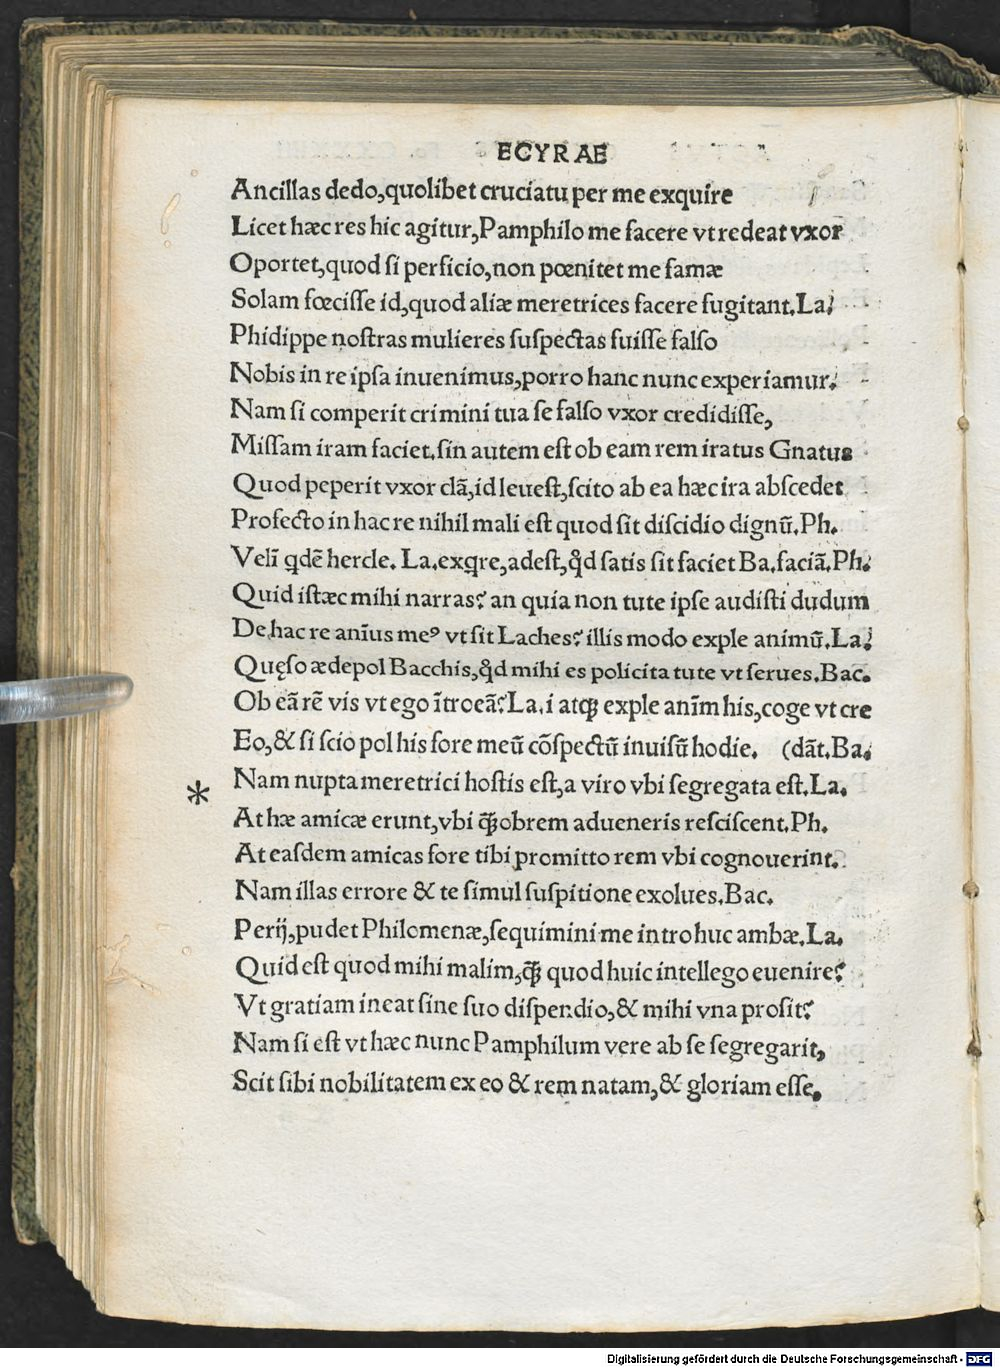 ECYRAE
Ancillas dedo,quolibet cruciatu per me exquire
Licet hæc res hic agitur,Pamphilo me facere vt redeat vxor
Oportet,quod si perficio,non pœnitet me famæ
Solam fœcisse id,quod aliæ meretrices facere fugitant.La.
Phidippe nostras mulieres suspectas fuisse falso
Nobis in re ipsa inuenimus,porro hanc nunc experiamur.
Nam si comperit crimini tua se falso vxor credidisse,
Missam iram faciet.sin autem est ob eam rem iratus Gnatus
Quod peperit vxor clã,id leuest,scito ab ea hæc ira abscedet
Profecto in hac re nihil mali est quod sit discidio dignũ.Ph.
Velĩ qdẽ hercle. La.exqre,adest,qd satis sit faciet Ba.faciã.Ph.
Quid istæc mihi narras? an quia non tute ipse audisti dudum
De hac re anĩus meꝰ vt sit Laches? illis modo exple animũ.La.
Quęso ædepol Bacchis,qd mihi es policita tute vt serues.Bac.
Ob eã rẽ vis vt ego ĩtroeã?La.i atqꝫ exple anĩm his,coge vt cre
Eo,& si scio pol his fore meũ cõspectũ inuisũ hodie. (dãt.Ba.
* Nam nupta meretrici hostis est,a viro vbi segregata est.La.
At hæ amicæ erunt,vbi q̃obrem adueneris resciscent.Ph.
At easdem amicas fore tibi promitto rem vbi cognouerint.
Nam illas errore & te simul suspitione exolues.Bac.
Perij,pudet Philomenæ,sequimini me intro huc ambæ.La.
Quid est quod mihi malim,q̃ quod huic intellego euenire?
Vt gratiam ineat sine suo dispendio,& mihi vna prosit?
Nam si est vt hæc nunc Pamphilum vere ab se segregarit,
Scit sibi nobilitatem ex eo & rem natam,& gloriam esse.
Digitalisierung gefördert durch die Deutsche Forschungsgemeinschaft - DFG